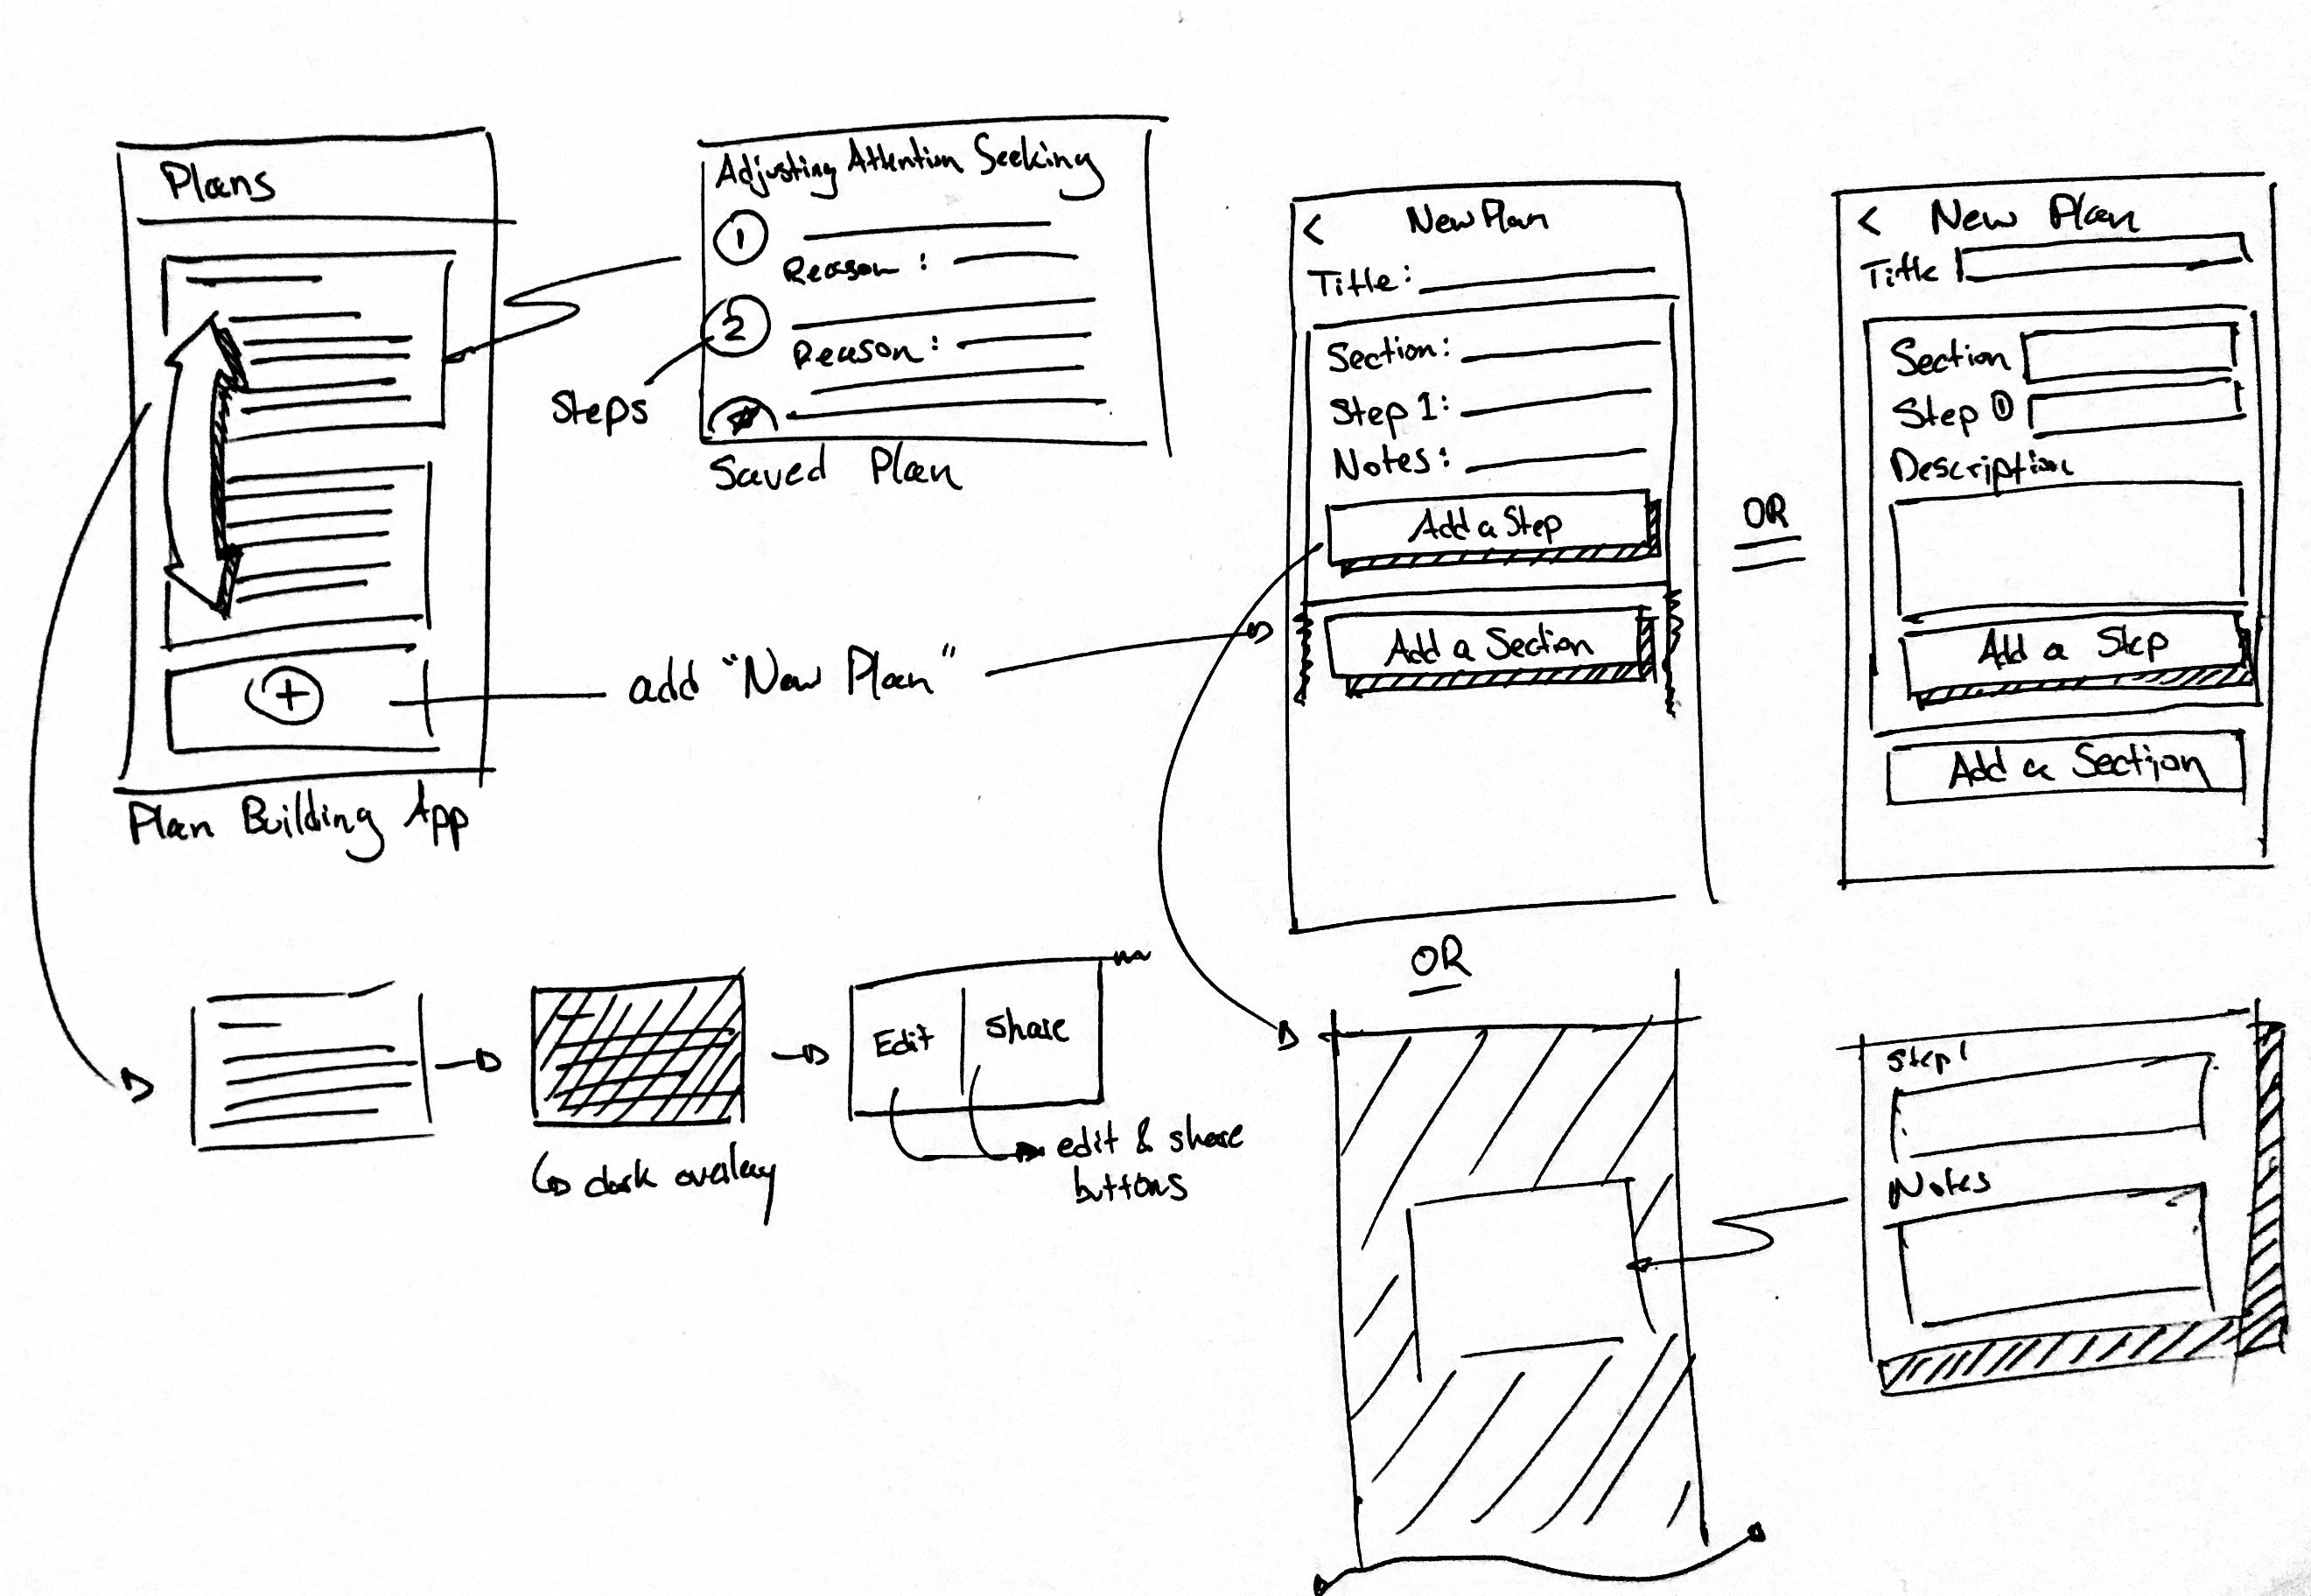 Plans
Plan Building App
Adjusting Attention Seeking
1
Reason :
2
Reason :
Steps
Saved Plan
add "New Plan"
+
< New Plan
Title :
Section :
Step 1 :
Notes :
Add a Step
Add a Section
OR
< New Plan
Title
Section
Step 1
Description
Add a Step
Add a Section
dark overlay
Edit
Share
edit & share
buttons
OR
Step 1
Notes